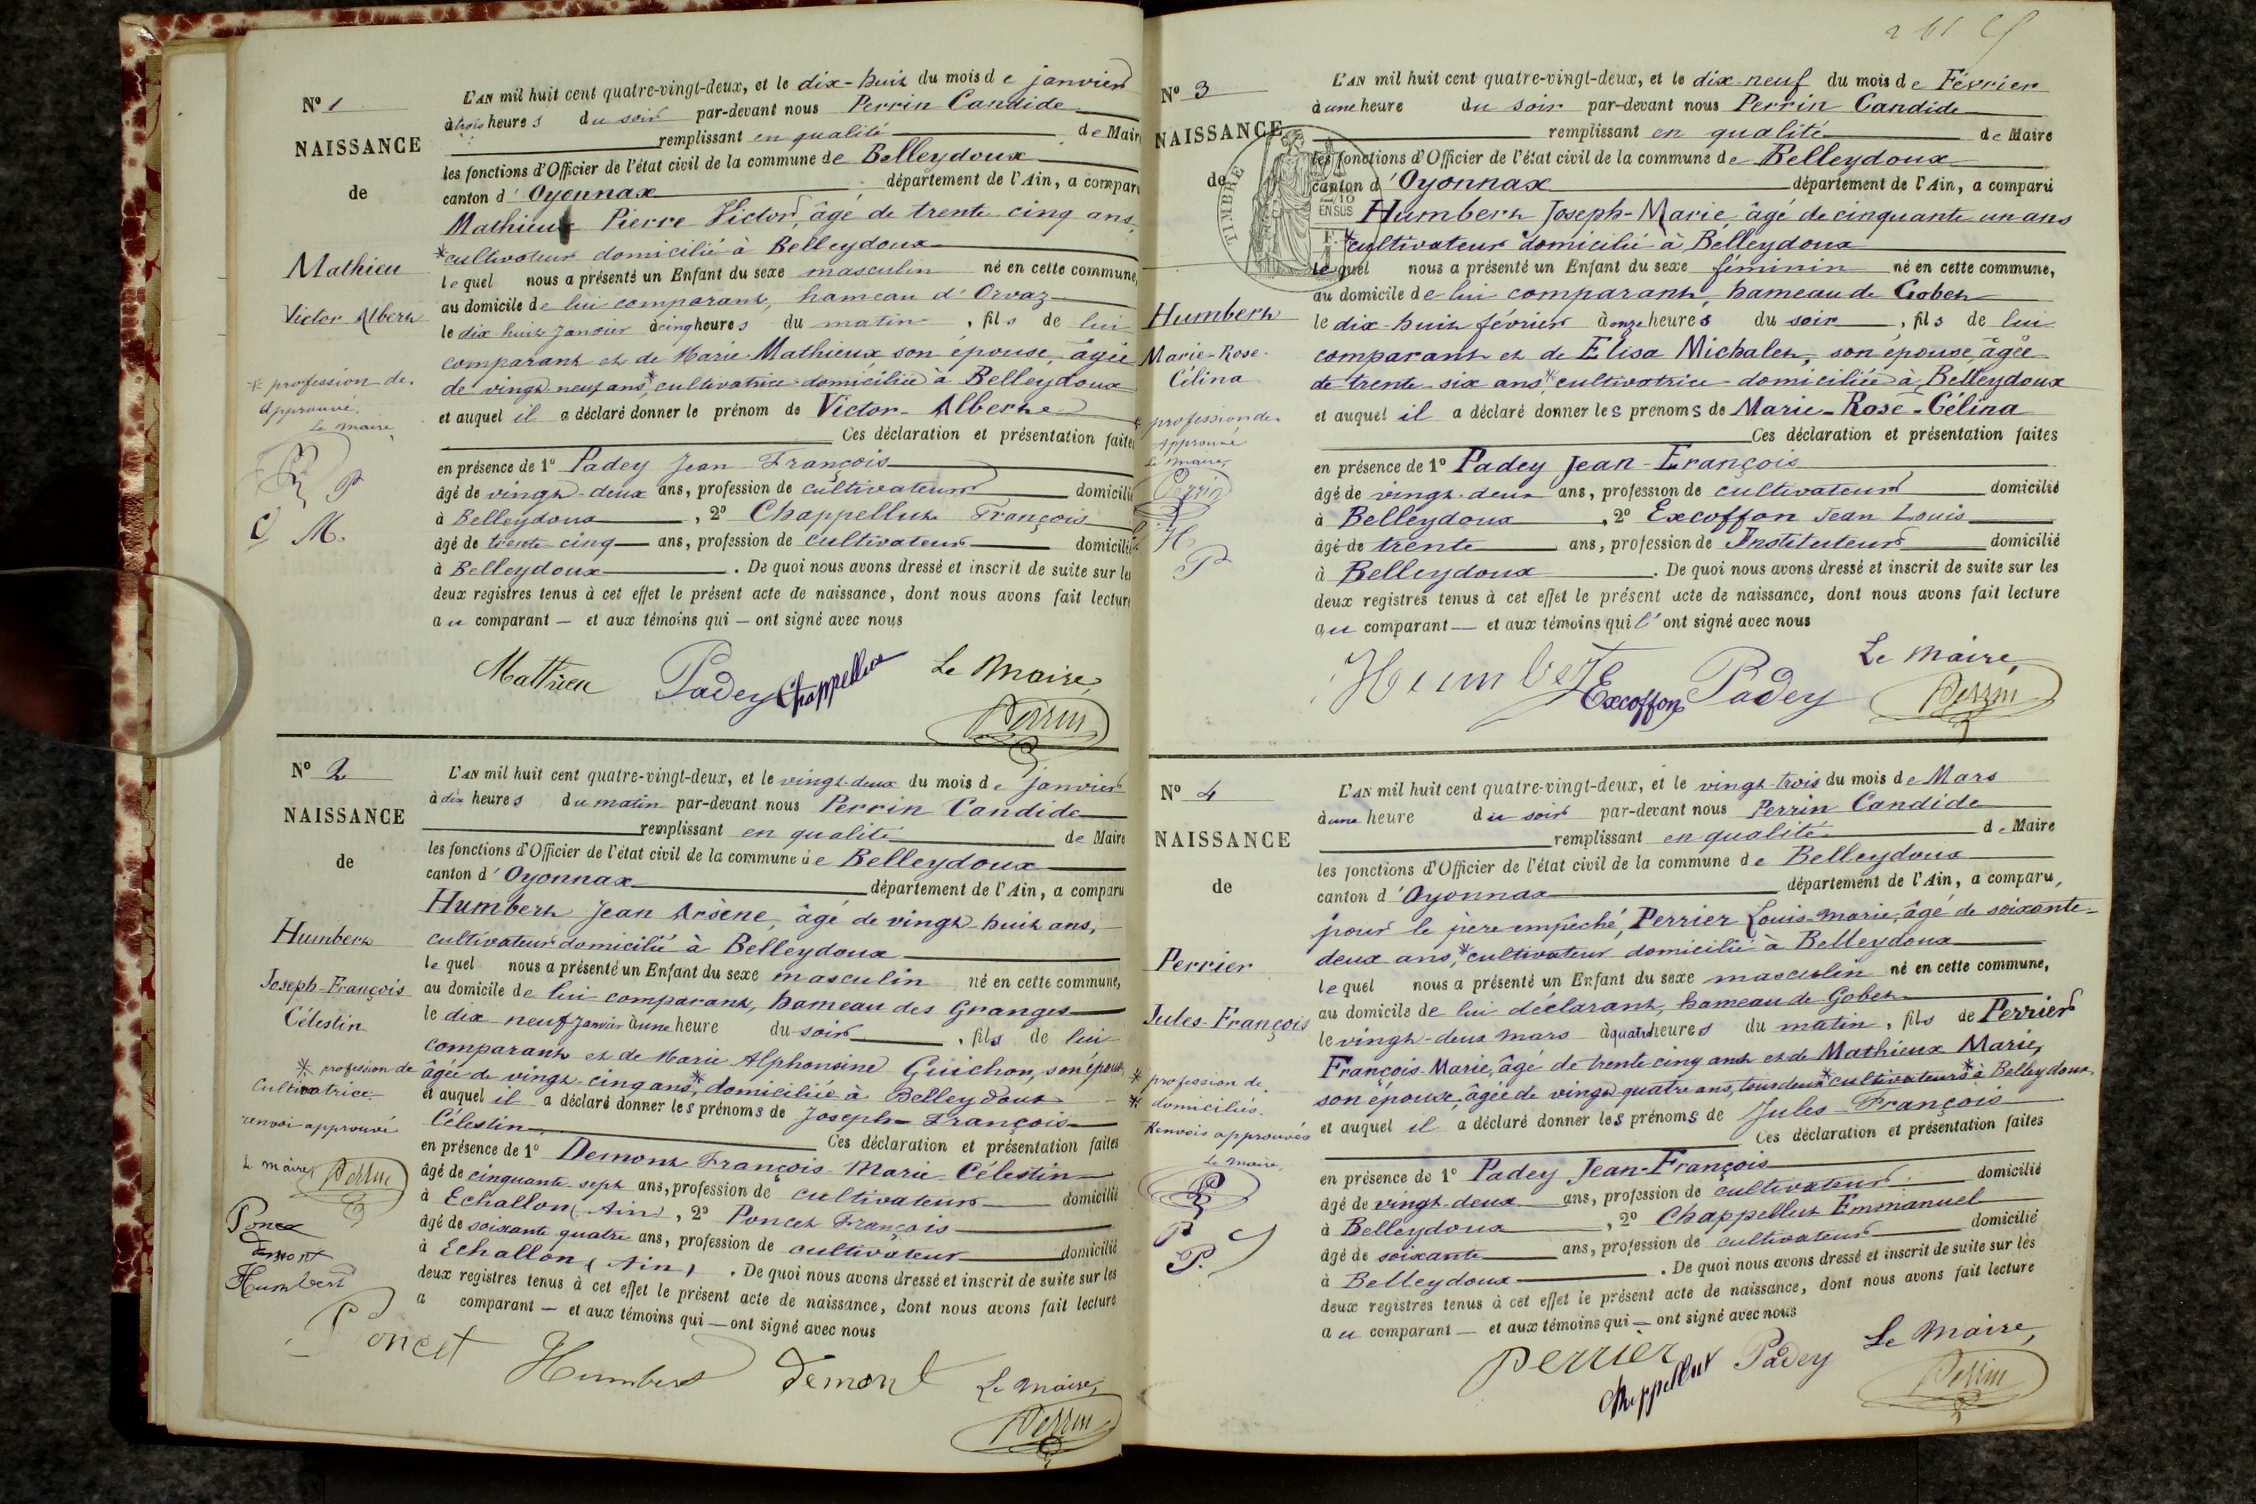 N° 1
NAISSANCE
de
Mathieu
Victor Albert
* profession de.
Approuvé.
Le maire
P P
C M.
L'AN mil huit cent quatre-vingt-deux, et le dix-huit du mois de janvier
à trois heures du soir par-devant nous Perrin Candide
remplissant en qualité de Maire
les fonctions d'Officier de l'état civil de la commune de Belleydoux
canton d'Oyonnax département de l'Ain, a comparu
Mathieux Pierre Victor, âgé de trente cinq ans,
*cultivateur domicilié à Belleydoux
lequel nous a présenté un Enfant du sexe masculin né en cette commune,
au domicile de lui comparant, hameau d'Orvaz
le dix huit Janvier à cinq heures du matin, fils de lui
comparant et de Marie Mathieux son épouse, âgée
de vingt neuf ans,* cultivatrice domiciliée à Belleydoux
et auquel il a déclaré donner le prénom de Victor-Albert
Ces déclaration et présentation faites
en présence de 1° Padey Jean François
âgé de vingt-deux ans, profession de cultivateur domicilié
à Belleydoux, 2° Chappelluz François
âgé de trente cinq ans, profession de cultivateur domicilié
à Belleydoux. De quoi nous avons dressé et inscrit de suite sur les
deux registres tenus à cet effet le présent acte de naissance, dont nous avons fait lecture
au comparant — et aux témoins qui — ont signé avec nous
Mathieu Padey Chappellux Le Maire,
Perrin
N° 2
NAISSANCE
de
Humbert
Joseph-François
Célestin
* profession de
Cultivatrice.
renvoi approuvé
L. maire, Perrin
Poncet
Demont
Humbert
L'AN mil huit cent quatre-vingt-deux, et le vingt-deux du mois de janvier
à dix heures du matin par-devant nous Perrin Candide
remplissant en qualité de Maire
les fonctions d'Officier de l'état civil de la commune de Belleydoux
canton d'Oyonnax département de l'Ain, a comparu
Humbert Jean Arsène, âgé de vingt huit ans,
cultivateur domicilié à Belleydoux
lequel nous a présenté un Enfant du sexe masculin né en cette commune,
au domicile de lui comparant, hameau des Granges
le dix neuf Janvier à une heure du soir, fils de lui
comparant et de Marie Alphonsine Guichon, son épouse,
âgée de vingt-cinq ans,* domiciliée à Belleydoux
et auquel il a déclaré donner les prénoms de Joseph-François-
Célestin. Ces déclaration et présentation faites
en présence de 1° Demont François-Marie-Célestin
âgé de cinquante-sept ans, profession de cultivateur domicilié
à Echallon (Ain), 2° Poncet François
âgé de soixante quatre ans, profession de cultivateur domicilié
à Echallon (Ain). De quoi nous avons dressé et inscrit de suite sur les
deux registres tenus à cet effet le présent acte de naissance, dont nous avons fait lecture
a comparant — et aux témoins qui — ont signé avec nous
Poncet Humbert Demont Le Maire,
Perrin
N° 3
NAISSANCE
de
Humbert
Marie-Rose-
Célina
* profession de
Approuvé
Le maire,
Perrin
H
P
TIMBRE
2/10
EN SUS
L'AN mil huit cent quatre-vingt-deux, et le dix-neuf du mois de Février
à une heure du soir par-devant nous Perrin Candide
remplissant en qualité de Maire
les fonctions d'Officier de l'état civil de la commune de Belleydoux
canton d'Oyonnax département de l'Ain, a comparu
Humbert Joseph-Marie âgé de cinquante un ans
*cultivateur domicilié à Belleydoux
lequel nous a présenté un Enfant du sexe féminin né en cette commune,
au domicile de lui comparant, hameau de Gobet
le dix-huit février à onze heures du soir, fils de lui
comparant et de Elisa Michalet, son épouse, âgée
de trente-six ans* cultivatrice domiciliée à Belleydoux
et auquel il a déclaré donner les prenoms de Marie-Rose-Célina
Ces déclaration et présentation faites
en présence de 1° Padey Jean-François
âgé de vingt-deux ans, profession de cultivateur domicilié
à Belleydoux, 2° Excoffon Jean Louis
âgé de trente ans, profession de Instituteur domicilié
à Belleydoux. De quoi nous avons dressé et inscrit de suite sur les
deux registres tenus à cet effet le présent acte de naissance, dont nous avons fait lecture
au comparant — et aux témoins qui l'ont signé avec nous
Humbert Excoffon Padey Le Maire,
Perrin
N° 4
NAISSANCE
de
Perrier
Jules-François
* profession de
* domiciliés.
Renvois approuvés
Le Maire,
P
P
P.
L'AN mil huit cent quatre-vingt-deux, et le vingt-trois du mois de Mars
à une heure du soir par-devant nous Perrin Candide
remplissant en qualité de Maire
les fonctions d'Officier de l'état civil de la commune de Belleydoux
canton d'Oyonnax département de l'Ain, a comparu,
pour le père empêché, Perrier Louis-Marie, âgé de soixante-
deux ans,* cultivateur domicilié à Belleydoux
lequel nous a présenté un Enfant du sexe masculin né en cette commune,
au domicile de lui déclarant, hameau de Gobet
le vingt-deux mars à quatre heures du matin, fils de Perrier
François-Marie, âgé de trente cinq ans et de Mathieux Marie,
son épouse, âgée de vingt quatre ans, tous deux * cultivateurs * à Belleydoux,
et auquel il a déclaré donner les prénoms de Jules-François
Ces déclaration et présentation faites
en présence de 1° Padey Jean-François
âgé de vingt-deux ans, profession de cultivateur domicilié
à Belleydoux, 2° Chappelluz Emmanuel
âgé de soixante ans, profession de cultivateur domicilié
à Belleydoux. De quoi nous avons dressé et inscrit de suite sur les
deux registres tenus à cet effet le présent acte de naissance, dont nous avons fait lecture
au comparant — et aux témoins qui — ont signé avec nous
Perrier Chappellux Padey Le Maire,
Perrin